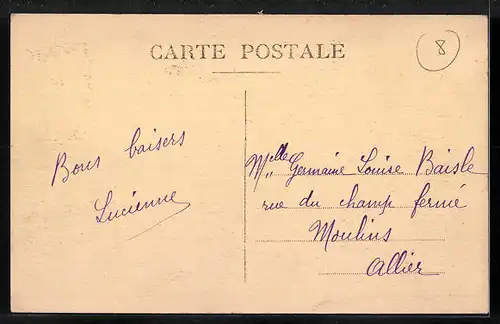 CARTE POSTALE
8
Bons baisers
Lucienne
Melle Germaine Louise Baisle
rue du champ fermé
Moulins
Allier